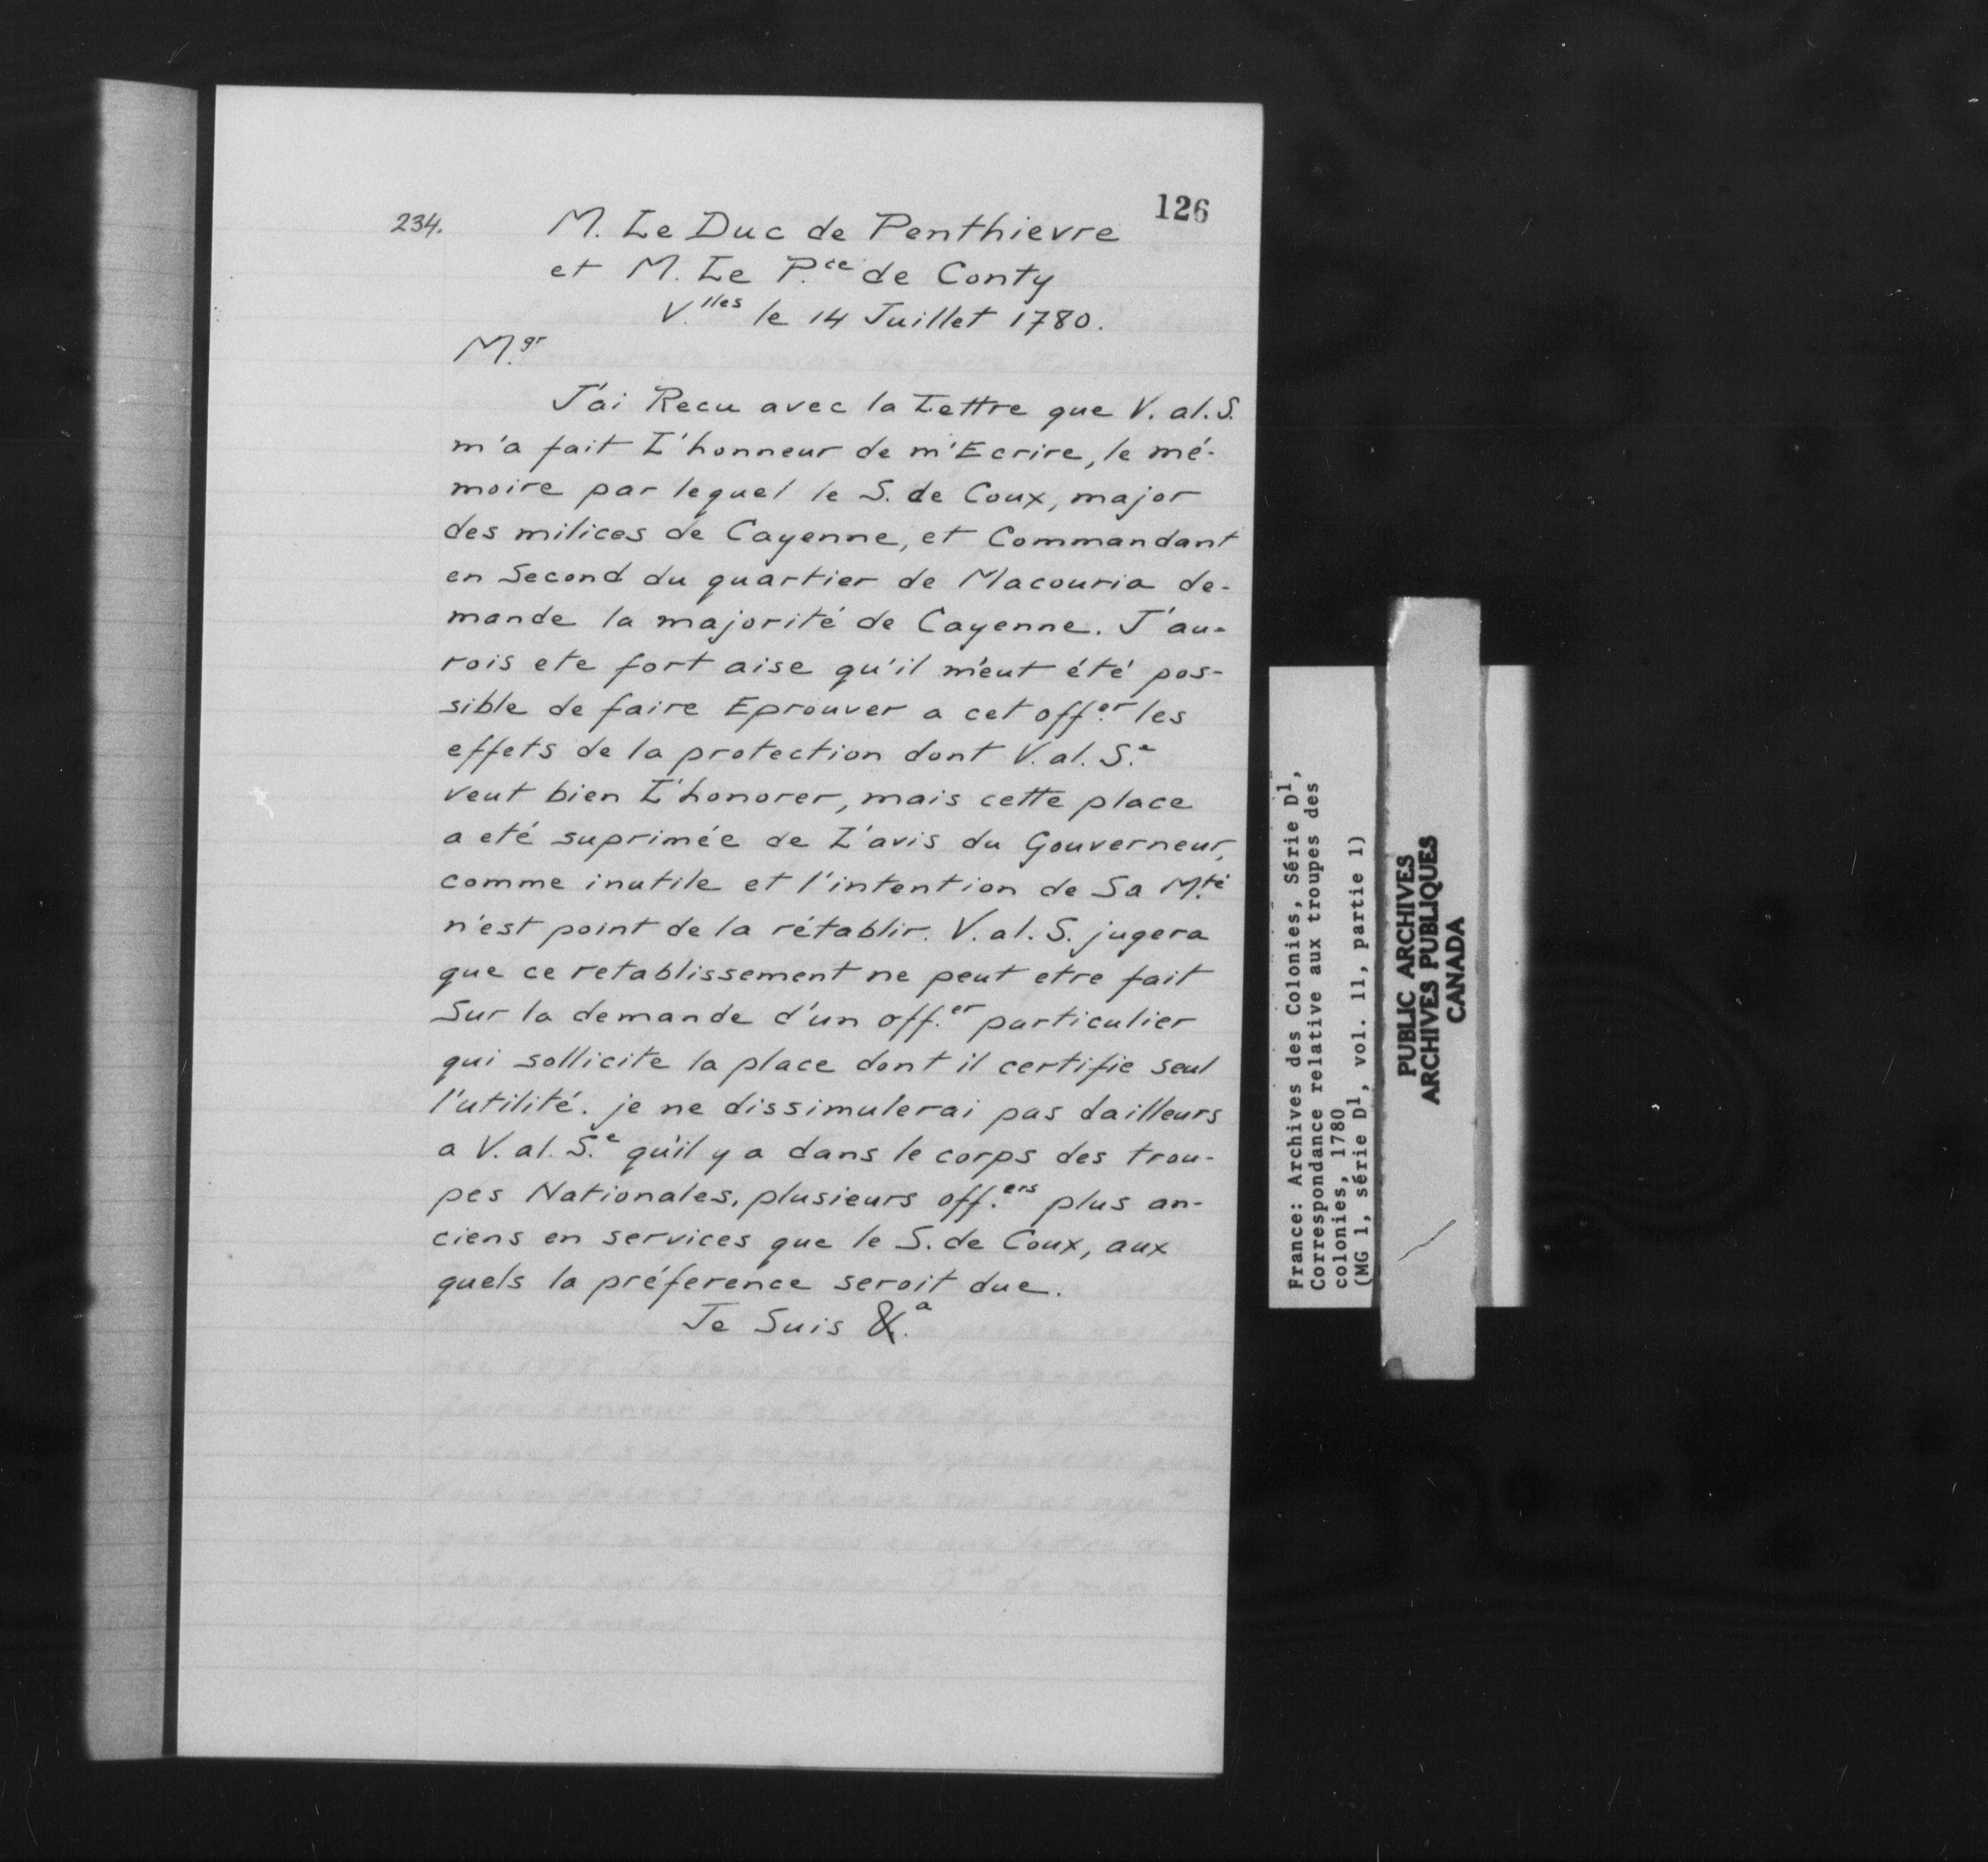 126
234.
M. Le Duc de Penthievre
et M. Le P.ce de Conty
V.lles le 14 Juillet 1780.
M.gr
J'ai Recu avec la Lettre que V. al. S.
m'a fait L'honneur de m'Ecrire, le mé-
moire par lequel le S. de Coux, major
des milices de Cayenne, et Commandant
en Second du quartier de Macouria de-
mande la majorité de Cayenne. J'au-
rois ete fort aise qu'il m'eut été pos-
sible de faire Eprouver a cet off.er les
effets de la protection dont V. al. S.e
veut bien L'honorer, mais cette place
a eté suprimée de L'avis du Gouverneur,
comme inutile et l'intention de Sa M.té
n'est point de la rétablir. V. al. S. jugera
que ce retablissement ne peut etre fait
Sur la demande d'un off.er particulier
qui sollicite la place dont il certifie seul
l'utilité. je ne dissimulerai pas dailleurs
a V. al. S.e qu'il y a dans le corps des trou-
pes Nationales, plusieurs off.ers plus an-
ciens en services que le S. de Coux, aux
quels la préference seroit due.
Je Suis &.a
France: Archives des Colonies, Série D1,
Correspondance relative aux troupes des
colonies, 1780
(MG 1, série D1, vol. 11, partie 1)
PUBLIC ARCHIVES
ARCHIVES PUBLIQUES
CANADA